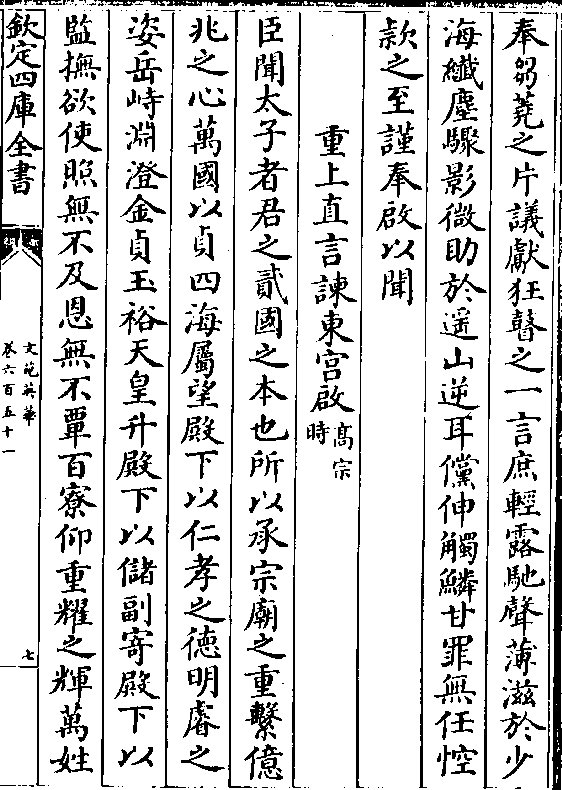 奉芻蕘之片議獻狂瞽之一言庶輕露馳聲薄滋於少
海纖塵驟影微助於遥山逆耳儻伸觸鱗甘罪無任悾
款之至謹奉啟以聞
重上直言諫東宫啟高宗時
臣聞太子者君之貳國之本也所以承宗廟之重繫億
兆之心萬國以貞四海屬望殿下以仁孝之徳明睿之
姿岳峙淵澄金貞玉裕天皇升殿下以儲副寄殿下以
監撫欲使照無不及恩無不覃百寮仰重耀之輝萬姓
欽定四庫全書
文苑英華
卷六百五十一
七